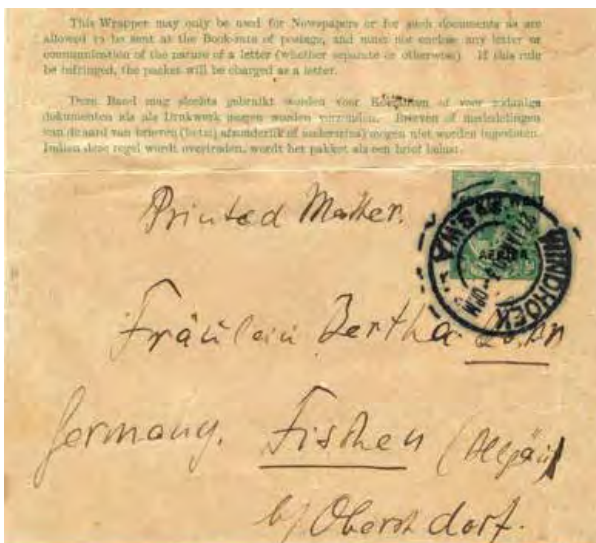 This Wrapper may only be used for Newspapers or for such documents as are
allowed to be sent at the Book-rate of postage, and must not enclose any letter or
communication of the nature of a letter (whether separate or otherwise). If this rule
be infringed, the packet will be charged as a letter.
Deze Band mag slechts gebruikt worden voor of voor zodanige
dokumenten als als Drukwerk mogen worden verzonden. Brieven of mededelingen
van de aard van brieven (hetzij afzonderlijk of anderszins) mogen niet worden ingesloten.
Indien deze regel wordt overtreden, wordt het pakket als een brief belast.
Printed Matter.
WINDHOEK
S.W.A.
Fräulein Bertha
Germany. Fischen (Allgäu)
b/ Oberstdorf.